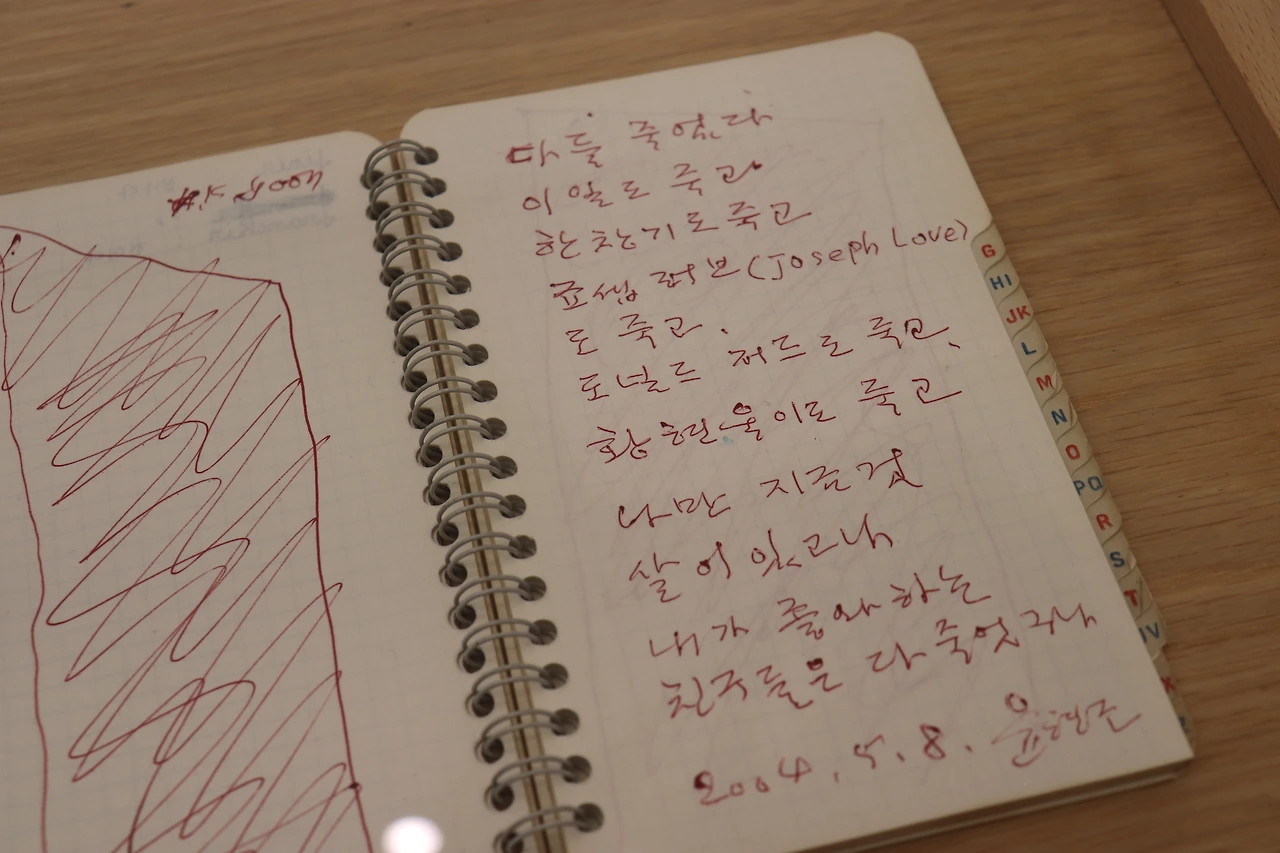 다들 죽었다
이일도 죽고
한창기도 죽고
죠셉 러브 (Joseph Love)
도 죽고.
도널드 저드도 죽고,
황현욱이도 죽고
나만 지금 껏
살어 있고나
내가 좋와 하는
친구들은 다 죽엇구나
2004. 5. 8. 윤형근
G
HI
JK
L
M
N
O
PQ
R
S
T